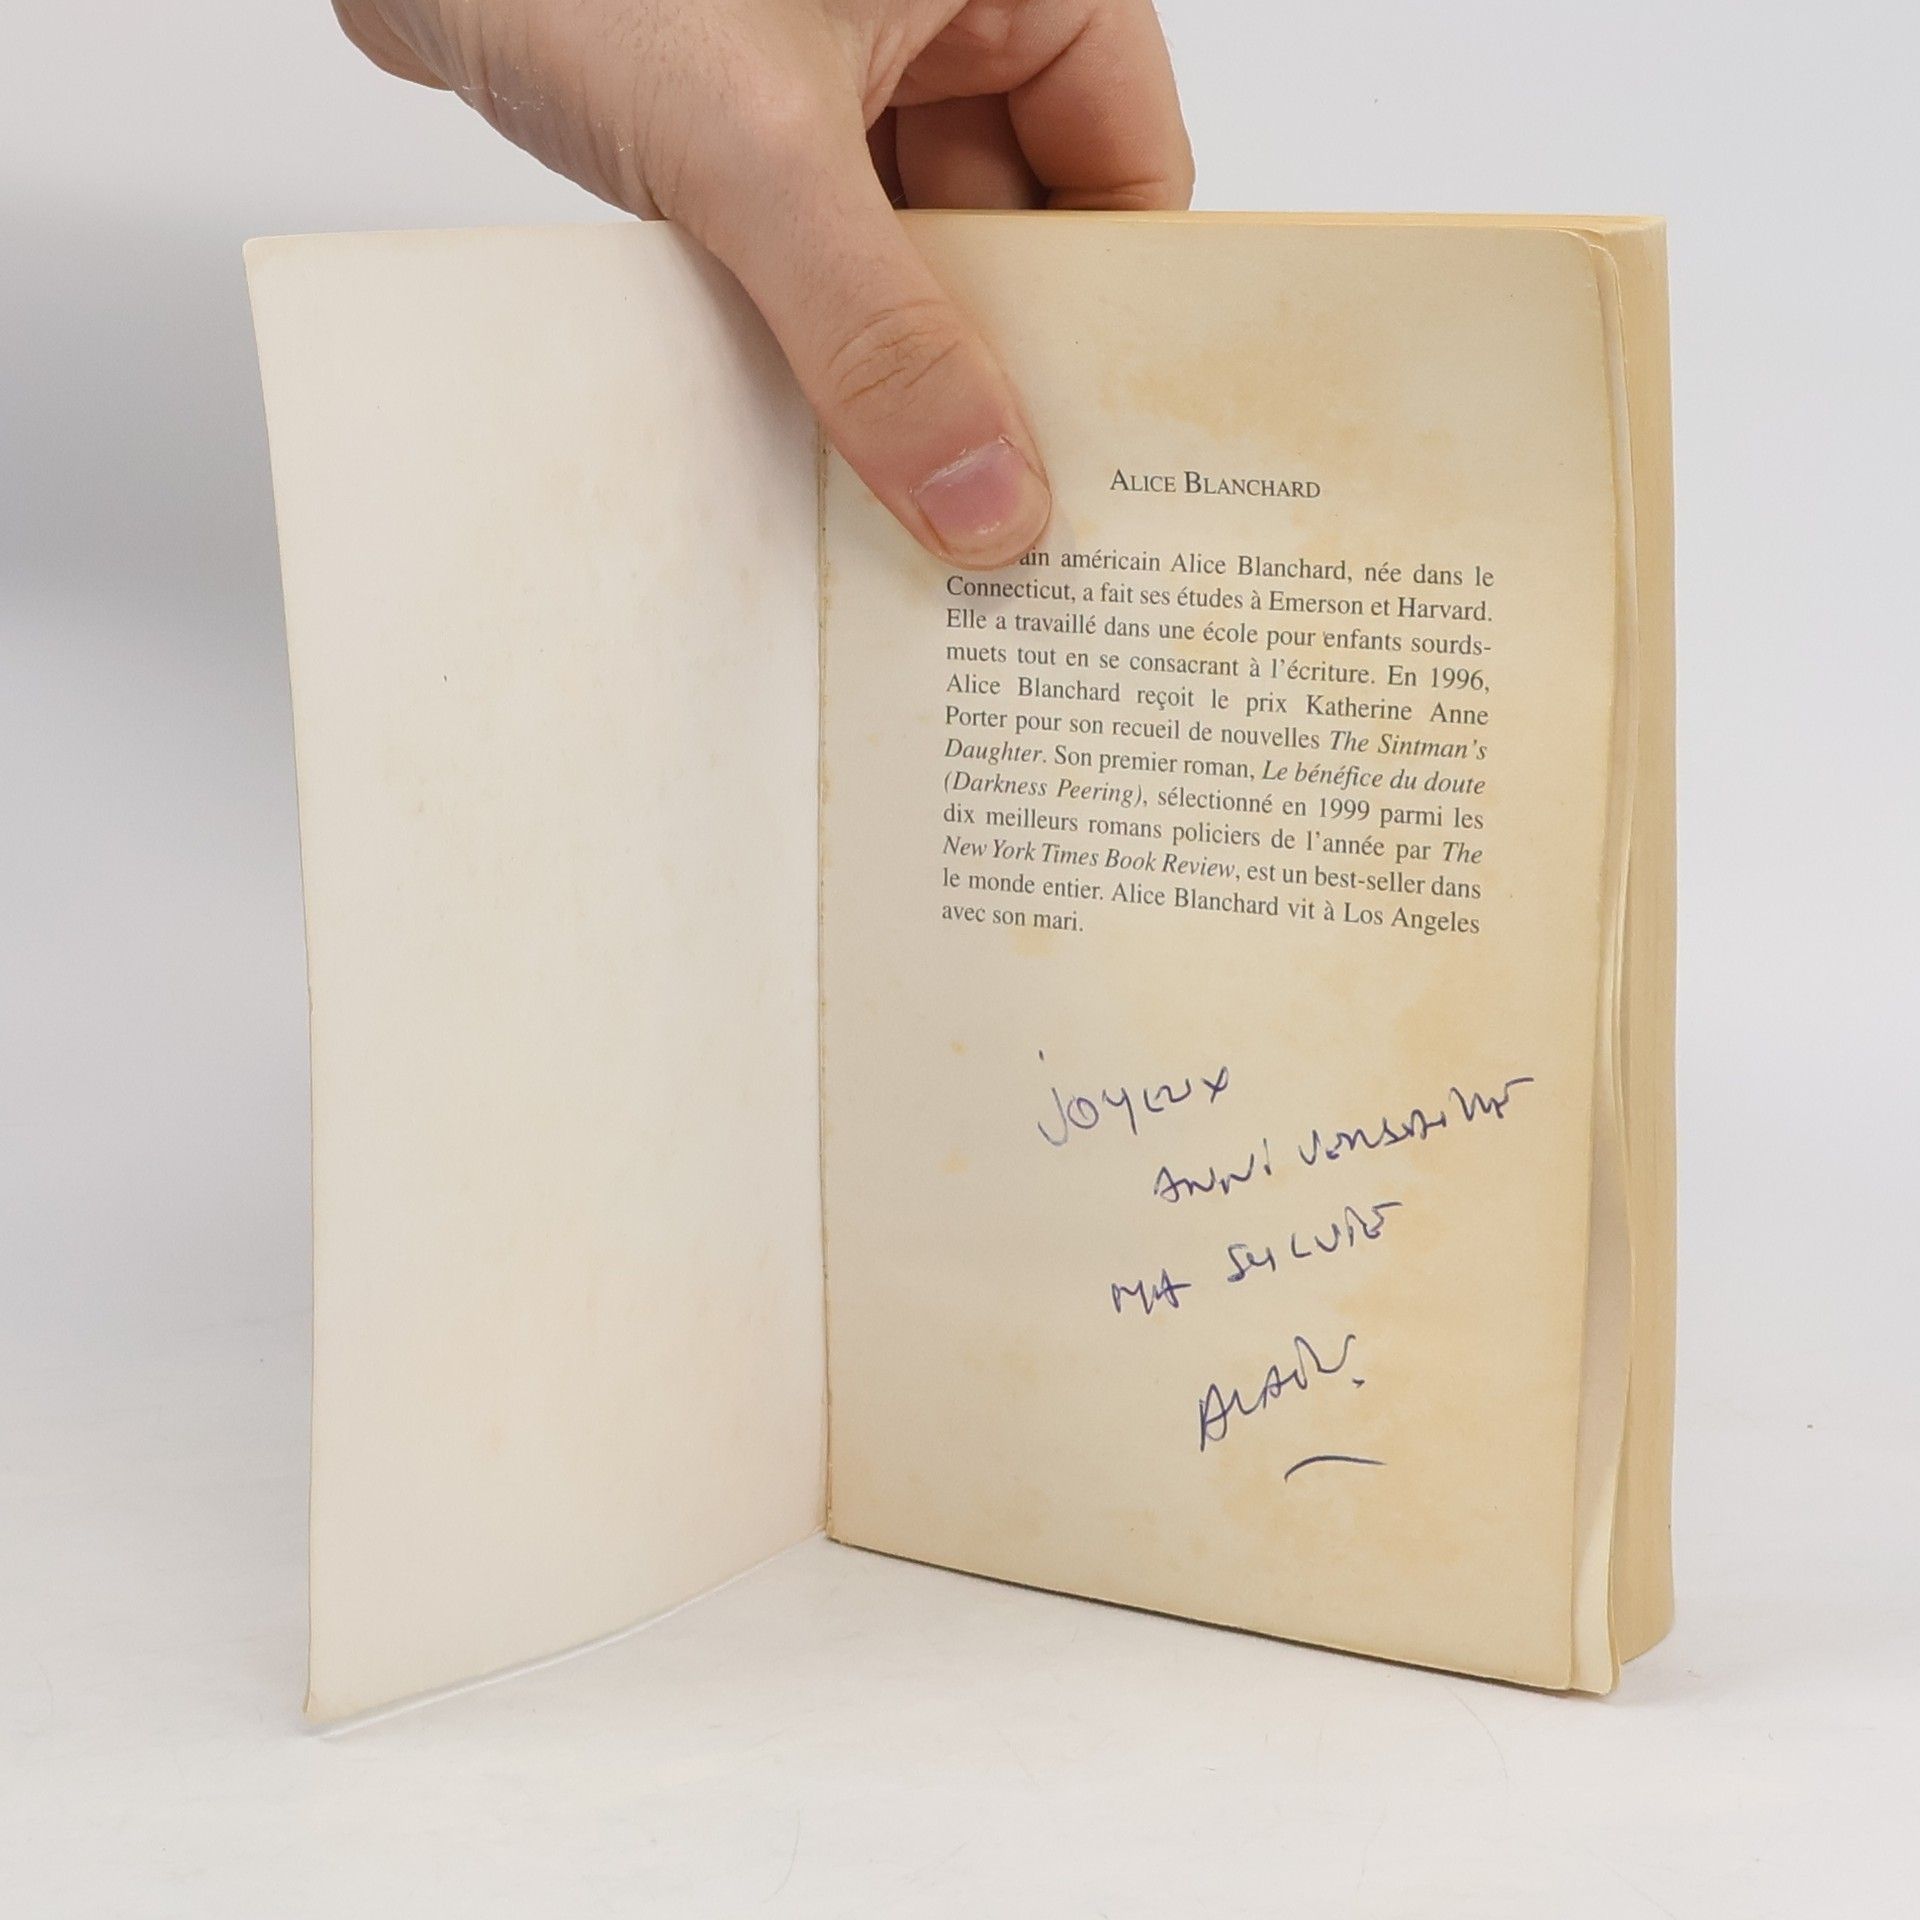 ALICE BLANCHARD
ain américain Alice Blanchard, née dans le
Connecticut, a fait ses études à Emerson et Harvard.
Elle a travaillé dans une école pour enfants sourds-
muets tout en se consacrant à l'écriture. En 1996,
Alice Blanchard reçoit le prix Katherine Anne
Porter pour son recueil de nouvelles The Sintman's
Daughter. Son premier roman, Le bénéfice du doute
(Darkness Peering), sélectionné en 1999 parmi les
dix meilleurs romans policiers de l'année par The
New York Times Book Review, est un best-seller dans
le monde entier. Alice Blanchard vit à Los Angeles
avec son mari.
JOYEUX
ANNIVERSAIRE
MA SYLVIE
ALAIN.